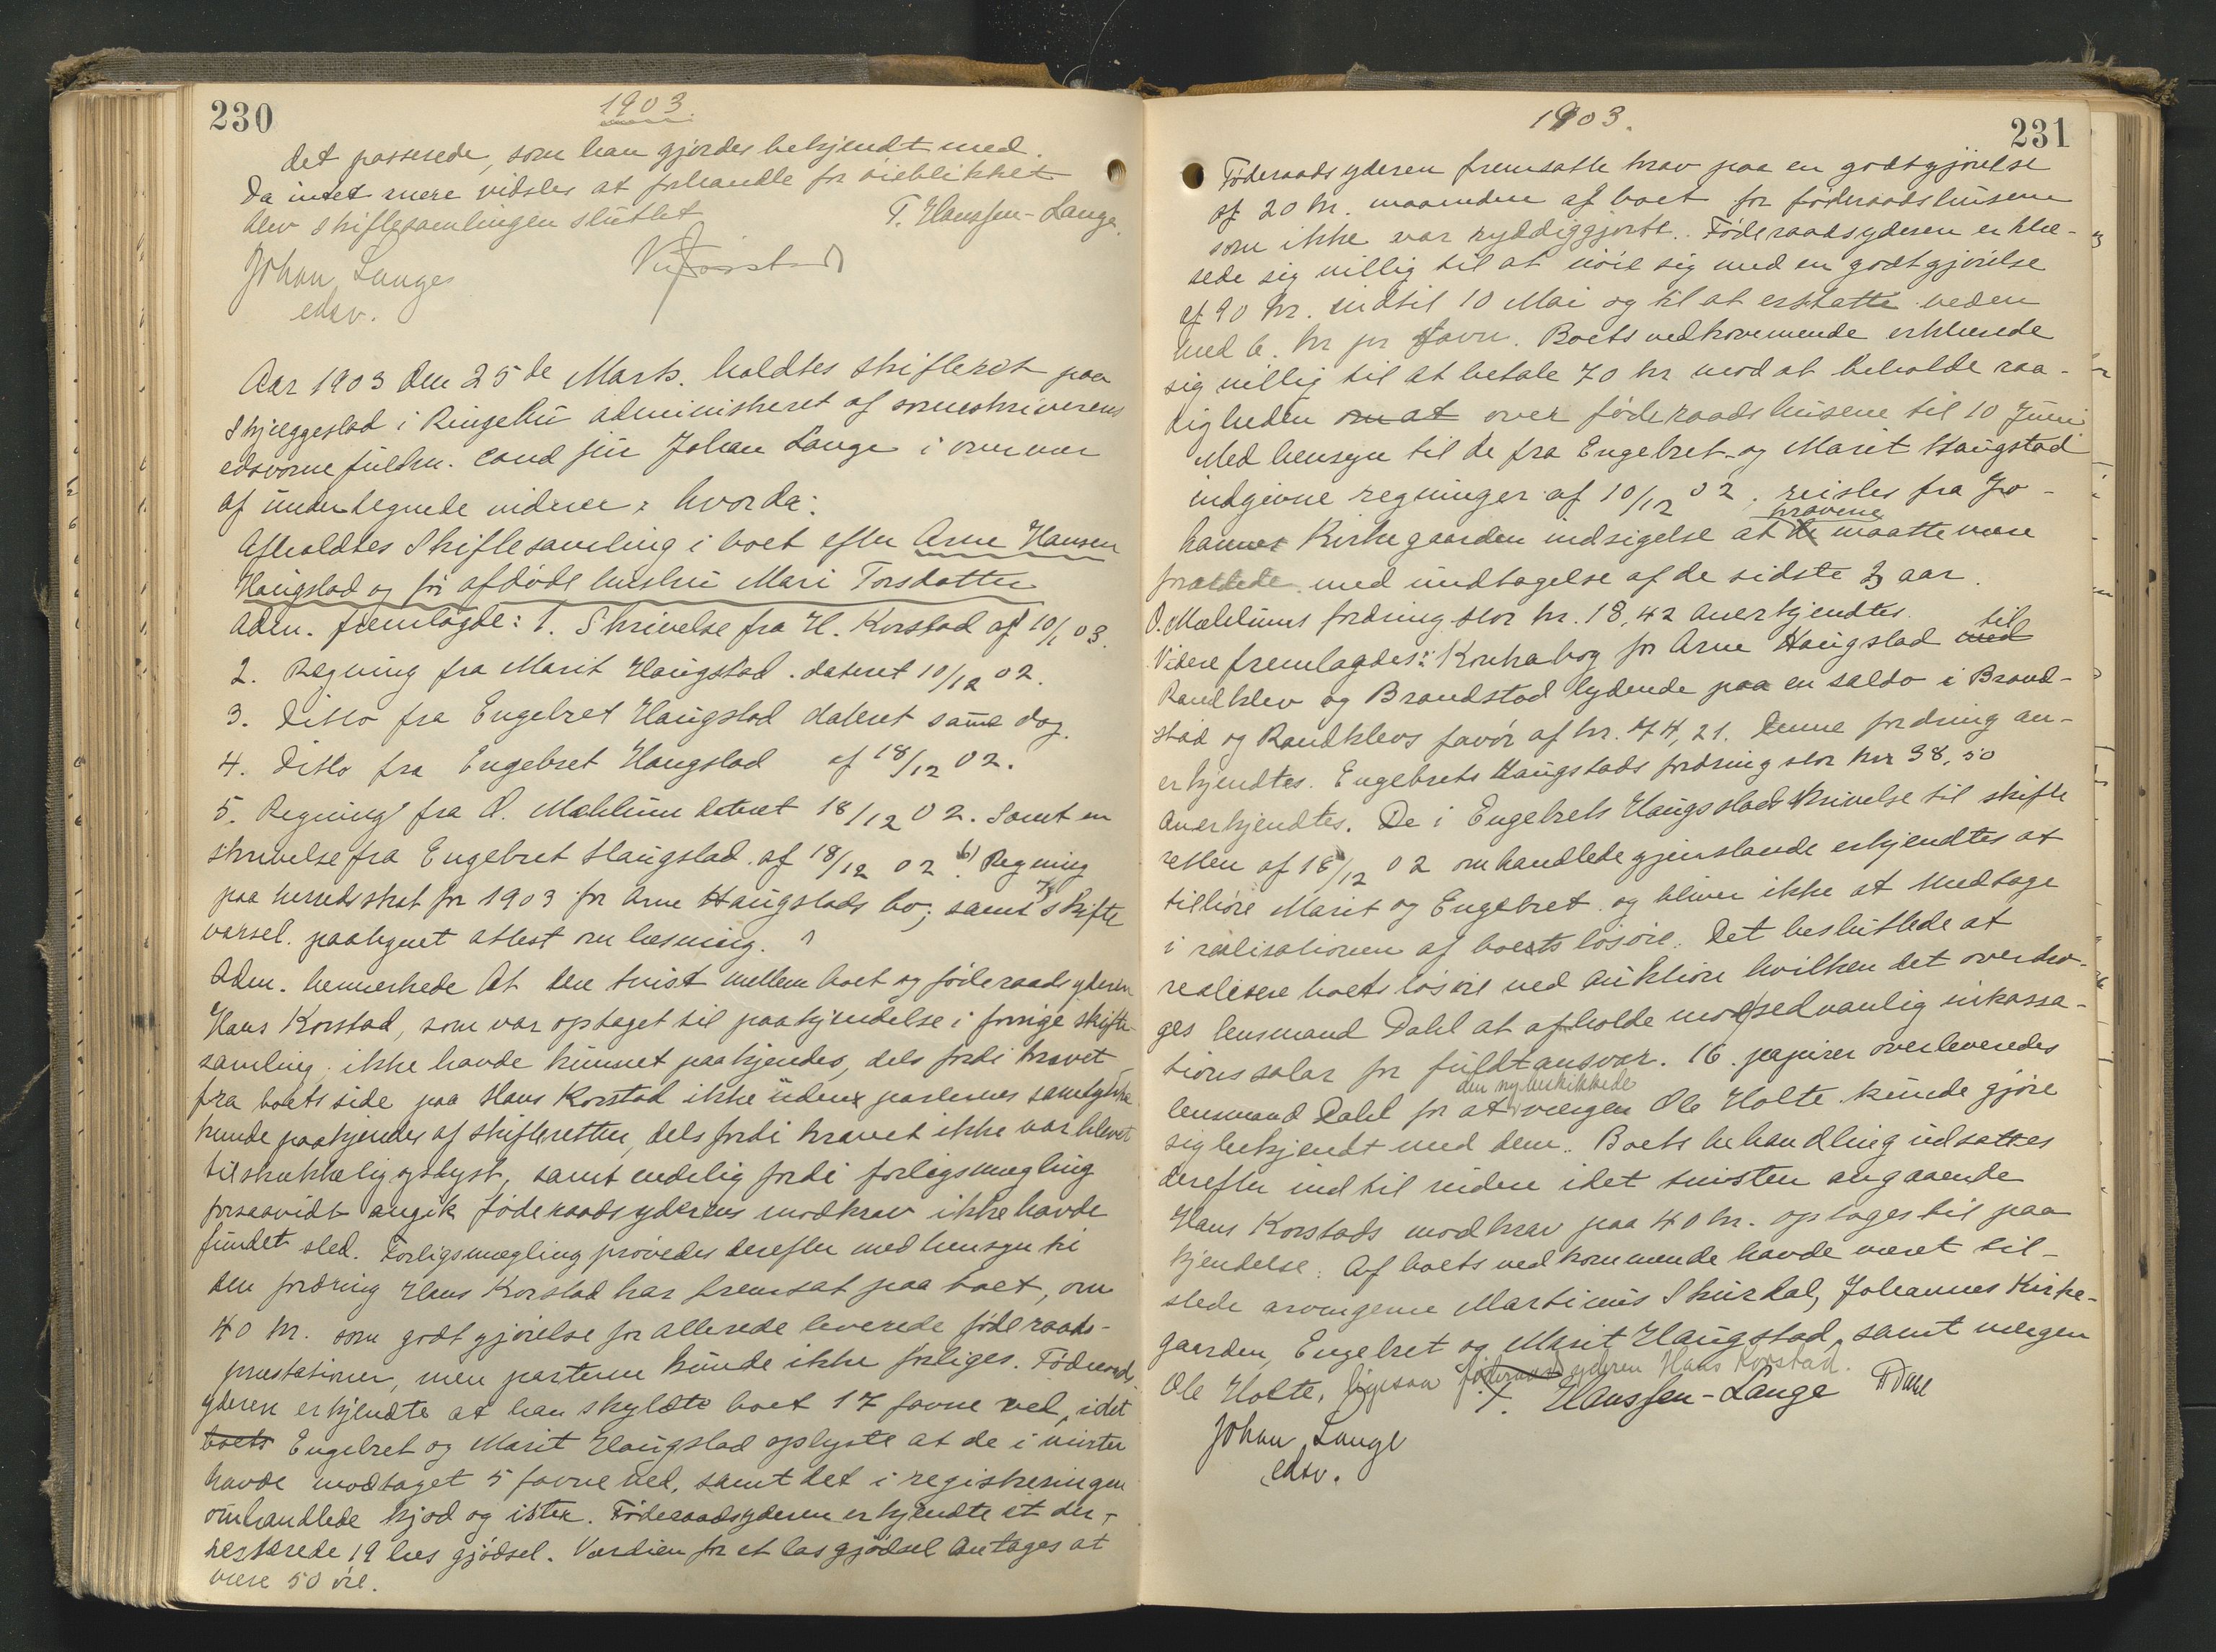 230
1903.
det passerede, som han gjordes bekjendt med.
Da intet mere vidstes at forhandle for öieblikket
blev skiftesamlingen sluttet
T. Hanssen-Lange.
Johan Lange
edsv.
Aar 1903 den 25de Marts. holdtes skifteret paa
Skjæggestad i Ringebu administreret af sorenskriverens
edsvorne fuldm. cand jur Johan Lange i overvær
af undertegnede vidner; hvorda:
Afholdtes Skiftesamling i boet efter Arne Hansen
Haugstad og før afdöde hustru Mari Torsdatter
Adm. fremlagde: 1. Skrivelse fra H. Korstad af 10/1 03.
2. Regning fra Marit Haugstad. dateret 10/12 02.
3. Ditto fra Engebret Haugstad dateret samme dag.
4. Ditto fra Engebret Haugstad af 18/12 02.
5. Regning fra O. Mæhlum dateret 18/12 02. Samt en
skrivelse fra Engebret Haugstad. af 18/12 02. 6) Regning
paa herredsskat for 1903 for Arne Haugstads bo; samt 7) skifte
varsel. paategnet attest om læsning.
Adm. bemerkede At den tvist mellem boet og föderaadsyderen
Hans Korstad, som var optaget til paakjendelse i forrige skifte-
samling. ikke havde kunnet paakjendes, dels fordi kravet
fra boets side paa Hans Korstad ikke uden parternes samtykke
kunde paakjendes af skifteretten, dels fordi kravet ikke var blevet
tilstrækkelig oplyst, samt endelig fordi forligsmægling
forsaavidt angik föderaadsyderens modkrav ikke havde
fundet sted. Forligsmægling prövedes derefter med hensyn til
den fordring Hans Korstad har fremsat paa boet, om
40 kr. som godtgjörelse for allerede leverede föderaads-
præstationer, men parterne kunde ikke forliges. Föderaads
yderen erkjendte at han skyldte boet 17 favne ved, idet
boets Engebret og Marit Haugstad oplyste at de i vinter
havde modtaget 5 favne ved, samt det i registreringen
omhandlede kjöd og ister. Föderaadsyderen erkjendte at der
resterede 19 læs gjödsel. Værdien for et læs gjödsel antages at
være 50 öre.
1903.
231
Föderaadsyderen fremsatte krav paa en godtgjörelse
af 20 kr. maaneden af boet for föderaadshusene
som ikke var ryddiggjorte. Föderaadsyderen erklæ-
rede sig villig til at nöie sig med en godtgjörelse
af 90 kr. indtil 10 Mai og til at erstatte veden
med 6. kr pr favn. Boets vedkommende erklærede
sig villig til at betale 70 kr mod at beholde raa-
digheden om at over föderaadshusene til 10 Juni
Med hensyn til de fra Engebret og Marit Haugstad
indgivne regninger af 10/12 02, reistes fra Jo-
hannes Kirkegaarden indsigelse at de kravene maatte være
forældede med undtagelse af de sidste 3 aar.
O. Mæhlums fordring stor kr. 18,42 anerkjendtes.
Videre fremlagdes: Kontrabog for Arne Haugstad med til
Randklev og Brandstad lydende paa en saldo i Brand-
stad og Randklevs favör af kr. 44,21. Denne fordring an-
erkjendtes. Engebrets Haugstads fordring stor kr 38,50
anerkjendtes. De i Engebrets Haugstads skrivelse til skifte
retten af 18/12 02 omhandlede gjenstande erkjendtes at
tilhöre Marit og Engebret og bliver ikke at medtage
i realisationen af boets lösöre. Det besluttede at
realisere boets lösöre ved auktion hvilken det overdra-
ges lensmand Dahl at afholde mod sedvanlig inkassa-
tionssalær for fuldt ansvar. 16. papirer overleveredes
lensmand Dahl for at den nybeskikkede værgen Ole Holte kunde gjöre
sig bekjendt med dem. Boets behandling udsattes
derefter indtil videre idet tvisten angaaende
Hans Korstads modkrav paa 40 kr. optages til paa
kjendelse. Af boets vedkommende havde været til-
stede arvingerne Martinus Skurdal, Johannes Kirke-
gaarden, Engebret og Marit Haugstad, samt værgen
Ole Holte, ligesaa föderaadsyderen Hans Korstad.
T. Hanssen-Lange
Johan Lange
edsv.